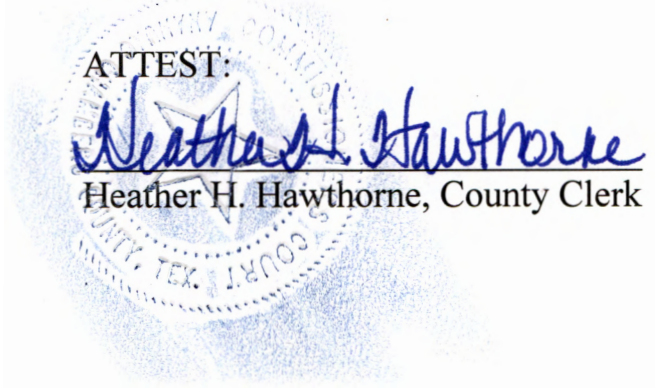 ATTEST:
Heather H. Hawthorne
Heather H. Hawthorne, County Clerk
COMMISSIONERS COURT
TEX.